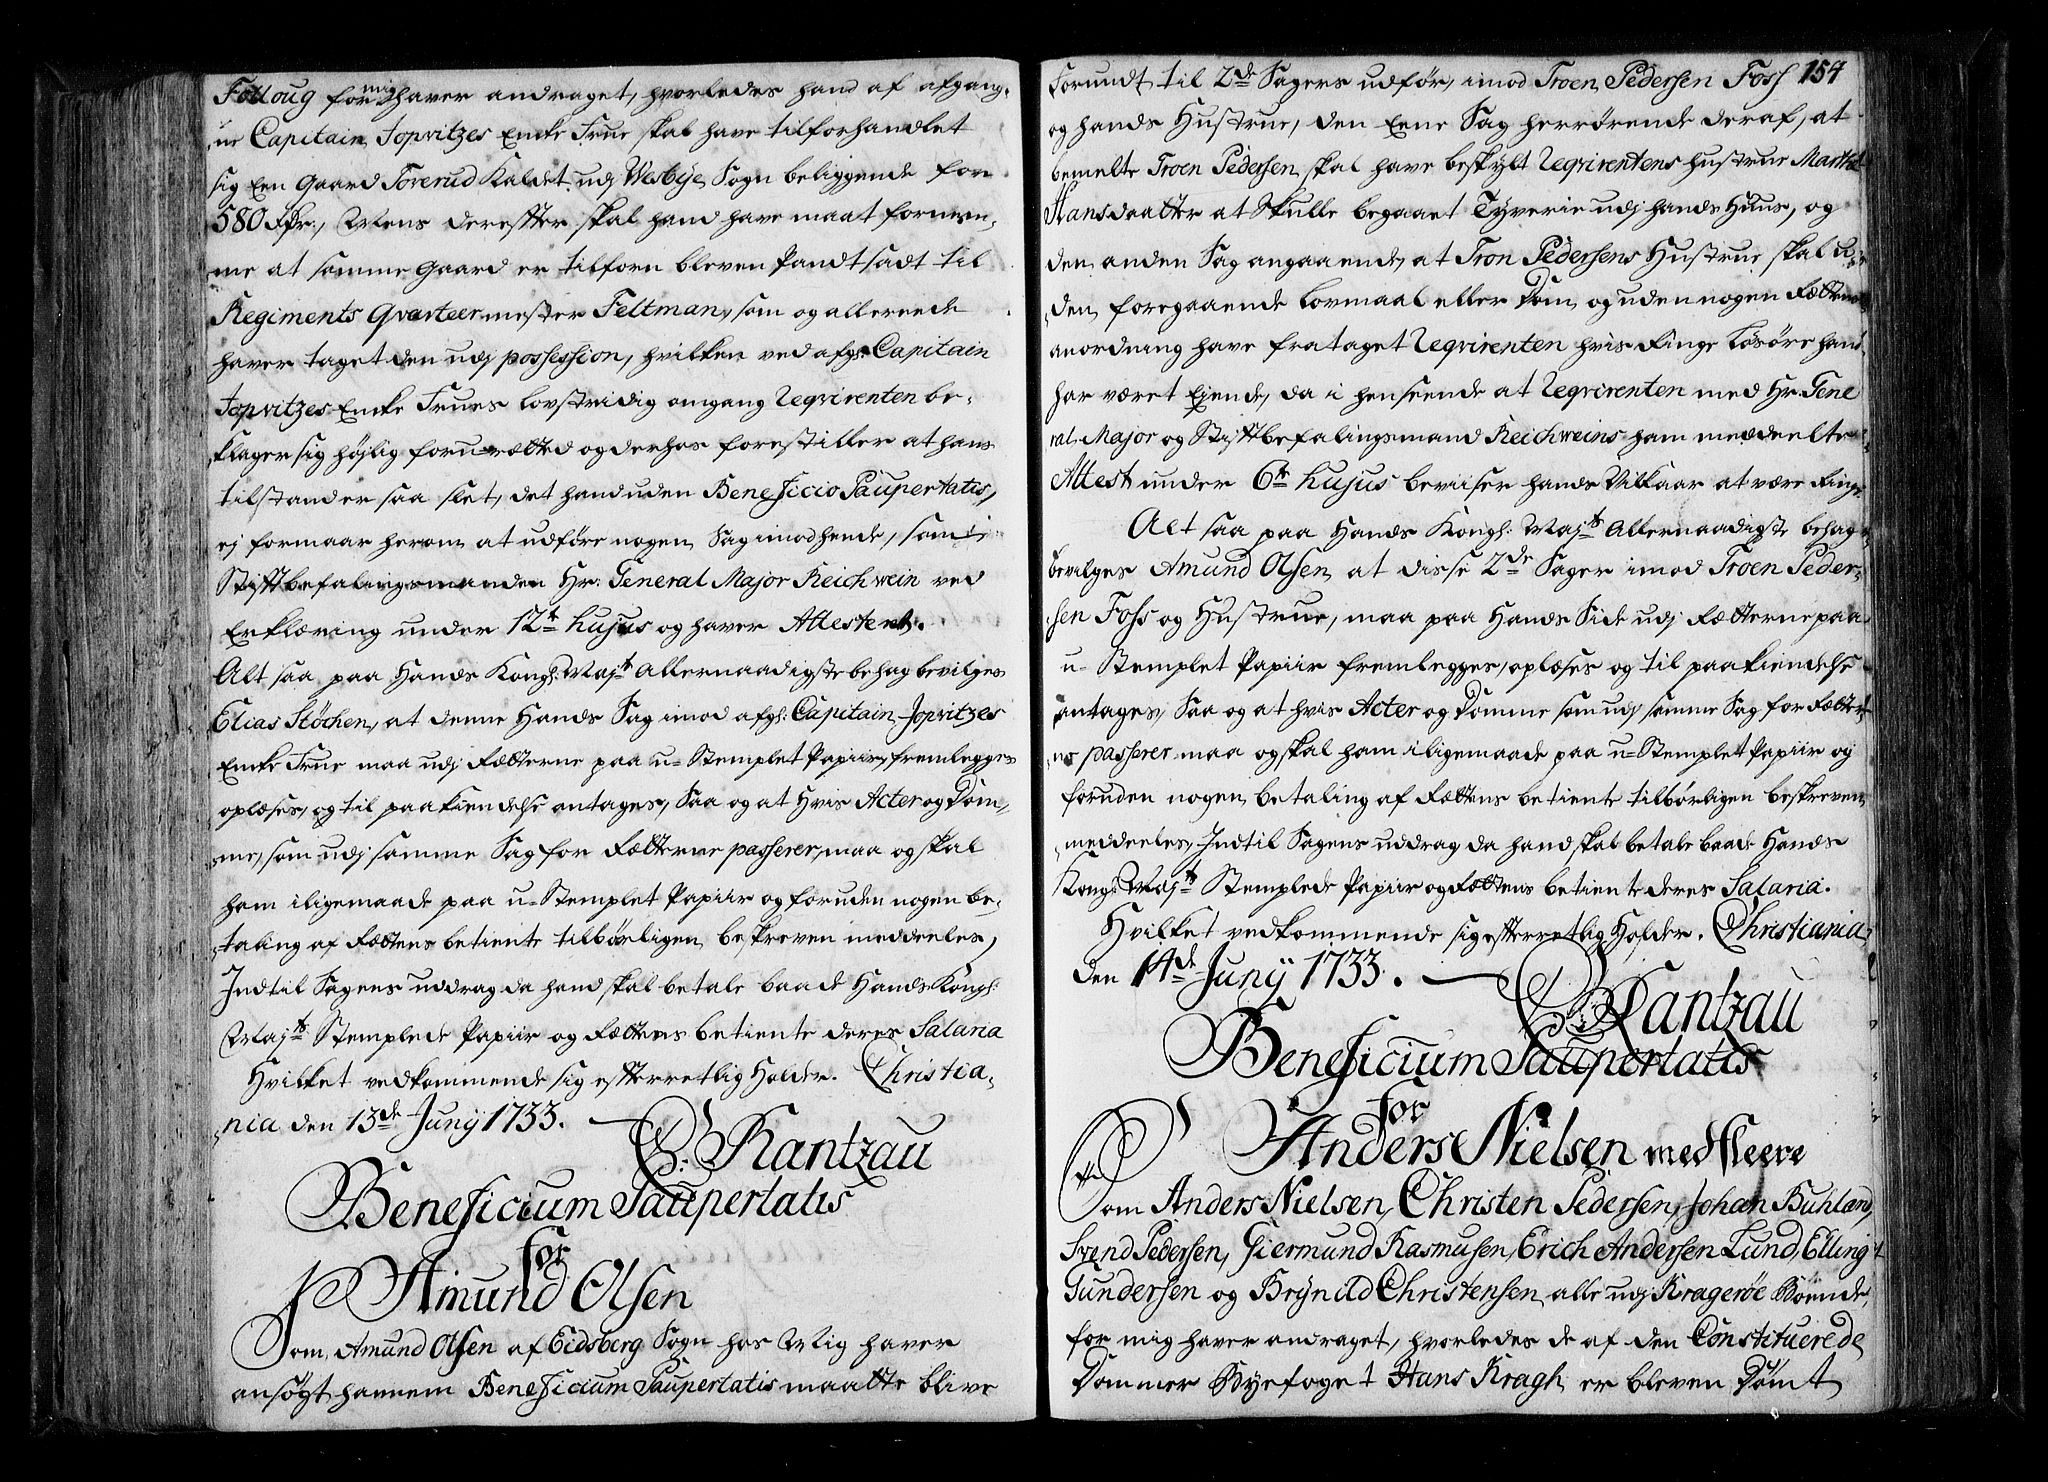 Folloug for mig haver andraget, hvorledes hand af afgang-
ne Capitain Jopvitzes Encke Frue skal have tilforhandlet
sig Een Gaard Torerud Kaldet udj Wesbye Sogn beliggende for
580 Rdr:, Mens derefter skal hand have maat fornem-
me at samme Gaard er tilforn bleven Pandtsadt til
Regiments Qvarteermester Feltman, som og allereede
haver taget den udj possession, hvilken ved afg: Capitain
Jopvitzes Encke Frues Lovstridig omgang Reqvirenten be-
klager sig højlig foruretted og derhos forestiller at hans
tilstand er saa slet, det hand uden Beneficio Paupertatis,
ej formaar herom at udføre nogen Sag imod hende, som
Stiftbefalingsmanden Hr: General Major Reichwein ved
Erklæring under 12te hujus og haver Attesteret.
Alt saa paa Hands Kongl: Majts Allernaadigste behag bevilges
Elias Stöchen, at denne Hands Sag imod afg: Capitain Jopvitzes
Encke Frue maa udj Rætterne paa u-Stemplet Papiir, fremlegges
oplæses, og til paakiendelse antages, Saa og at Hvis Acter og Dom-
me, som udj samme Sag for Rætterne passerer, maa og skal
ham iligemaade paa u-Stemplet Papiir og foruden nogen be-
taling af Rættens betiente tilbørligen beskreven meddeeles,
Indtil Sagens uddrag da hand skal betale baade Hands Kongl:
Majts Stemplede Papiir og Rættens betiente deres Salaria
Hvilket vedkommende sig efterretlig Holder. Christia-
nia den 13de Junij 1733.
C: Rantzau
Beneficium Paupertatis
for
Amund Olsen
Som Amund Olsen af Eidsberg Sogn hos Mig haver
ansøgt hannem Beneficium Paupertatis maatte blive
forundt til 2de Sagers udfør, imod Troen Pedersen Foss 154
og hands Hustrue, den Eene Sag herrørende deraf, at
bemelte Troen Pedersen skal have beskylt Reqvirentens Hustrue Marthe
Hansdaatter at Skulle begaaet Tyverie udj hands Huus, og
den anden Sag angaaende, at Tron Pedersens Hustrue skal u-
den foregaaende Lovmaal eller Dom, og uden nogen Rættens
anordning have frataget Reqvirenten hvis Ringe Løsøre hand
har været Ejende, da i henseende at Reqvirenten med Hr: Gene
ral Major og Stiftbefalingsmand Reichweins ham meddeelte
Attest under 6te hujus beviiser hands Vilkaar at være Ringe
Alt saa paa Hands Kongl: Majts Allernaadigste behag
bevilges Amund Olsen at disse 2de Sager imod Troen Peder-
sen Foss og Hustrue, maa paa Hands Side udj Rætterne paa
u-Stemplet Papiir fremlegges, oplæses og til paakiendelse
antages, Saa og at hvis Acter og Domme som udj samme Sag for Rætter-
ne passerer maa og skal ham iligemaade paa u-Stemplet Papiir og
foruden nogen betaling af Rættens betiente tilbørligen beskreven
meddeeles, Indtil Sagens uddrag da hand skal betale baade Hands
Kongl: Majts Stemplede Papiir og Rættens betiente deres Salaria.
Hvilket vedkommende sig efterretlig Holder. Christiania
den 14de Junij 1733.
C: Rantzau
Beneficium Paupertatis
for
Anders Nielsen med fleere
Som Anders Nielsen, Christen Pedersen, Johan Buhland,
Svend Pedersen, Giermund Rasmusen, Erich Andersen Lund, Elling
Gundersen og Brynild Christensen, alle udj Kragerøe Boende,
for mig haver andraget, hvorledes de af den Constituerede
Dommer Byefoget Hans Kragh er bleven Dømt